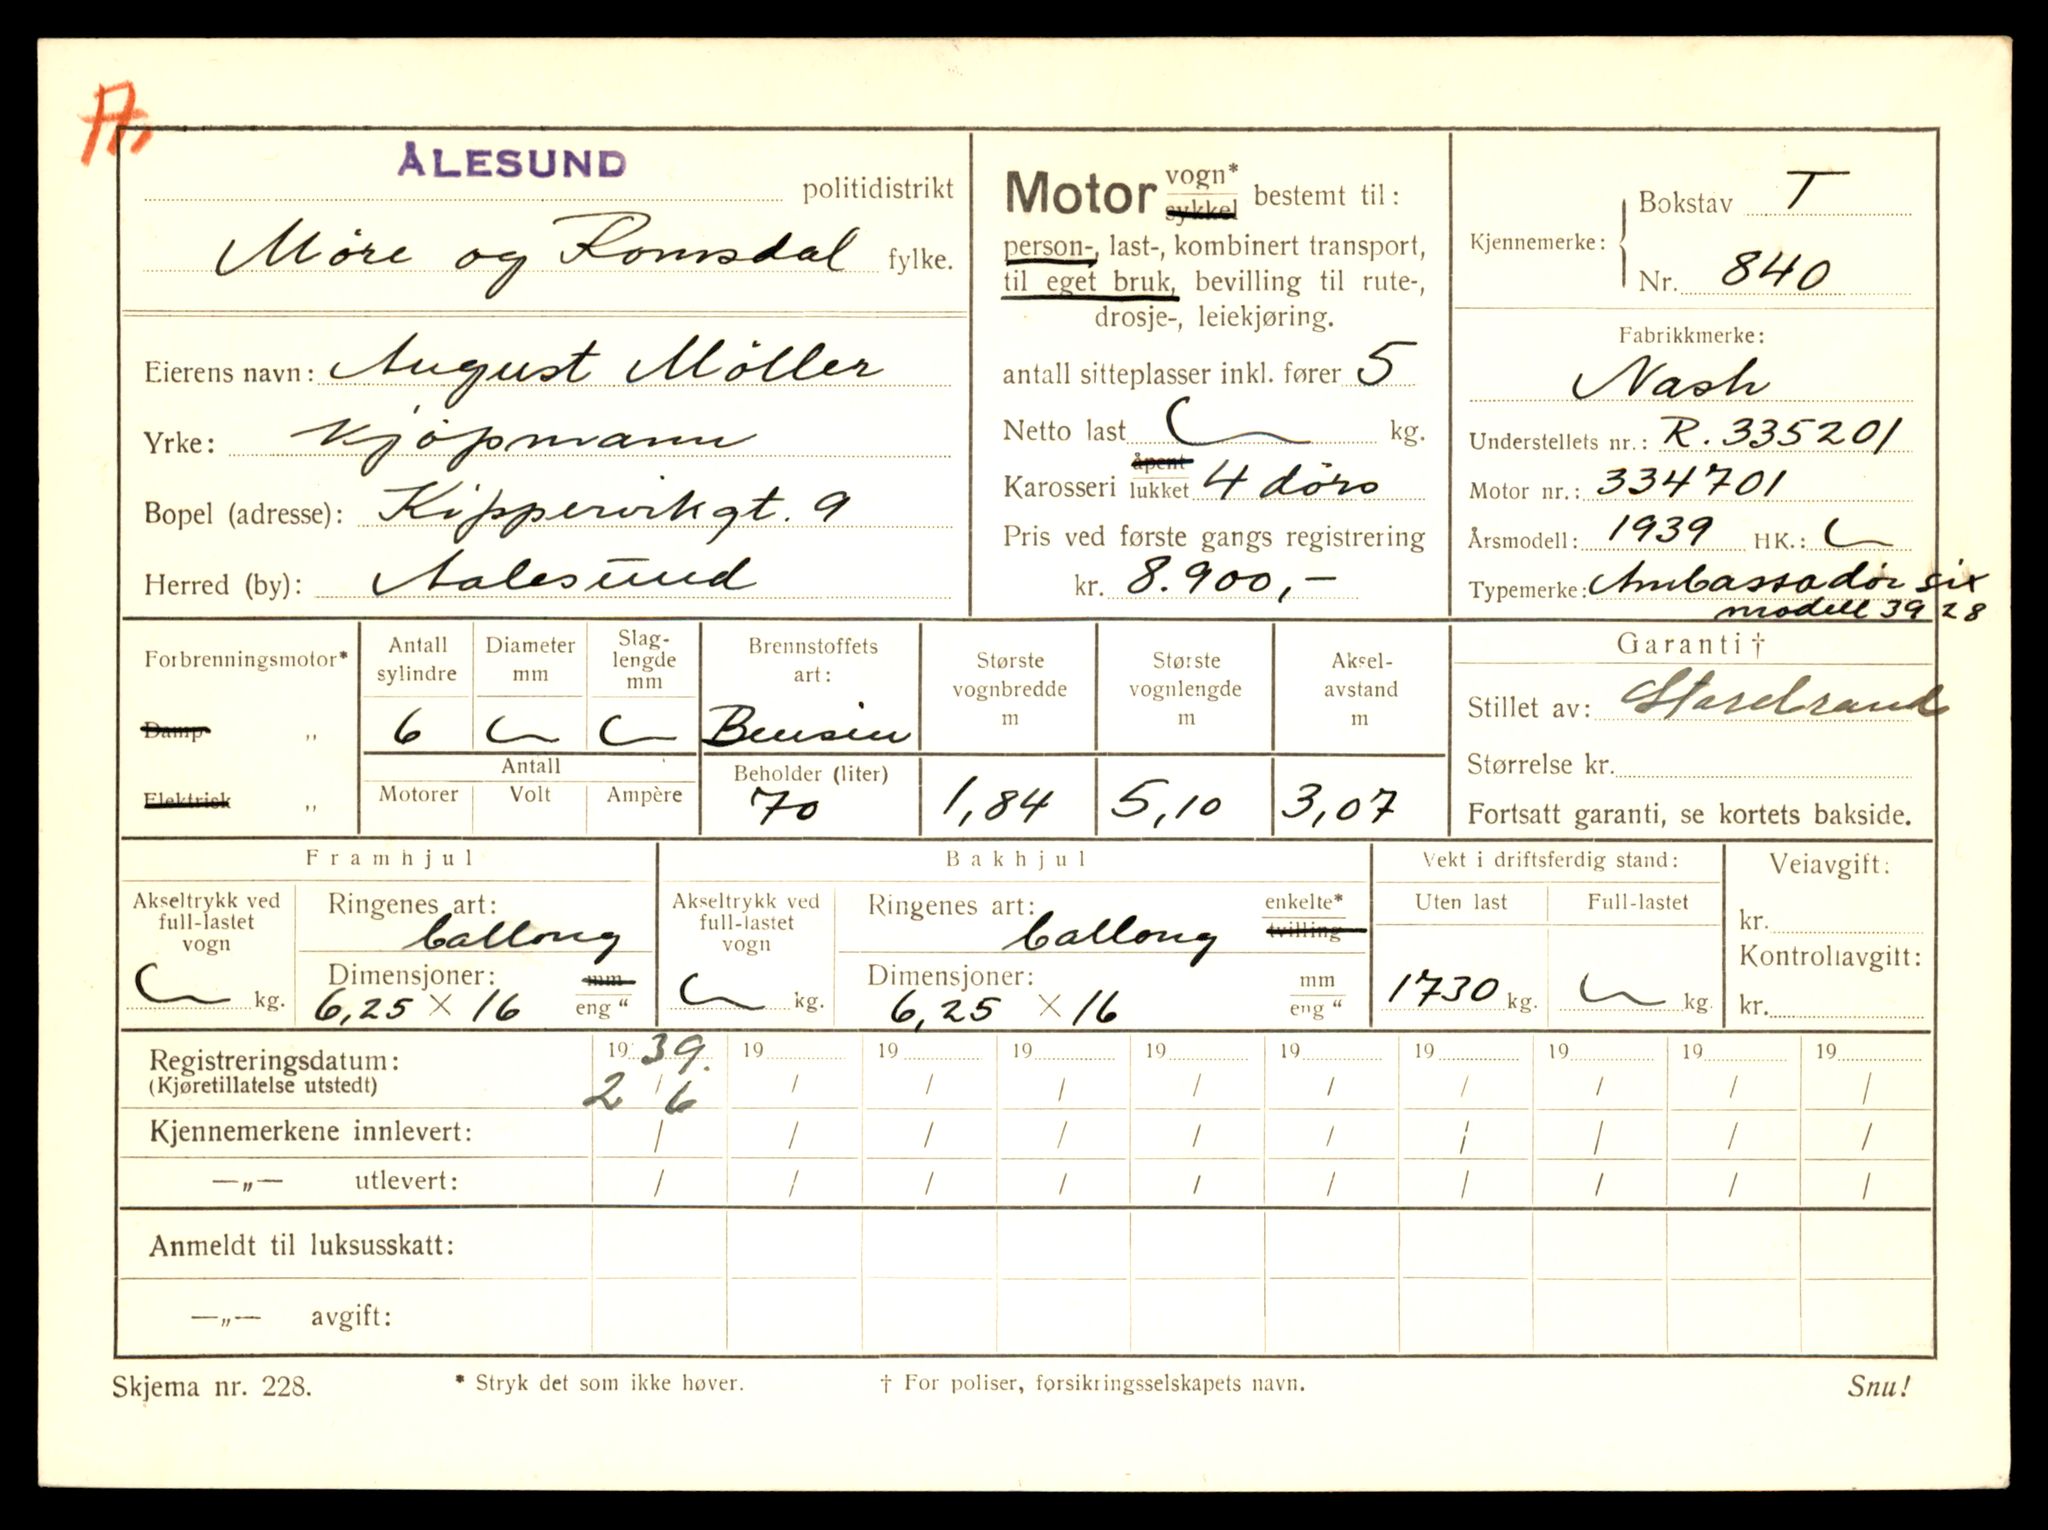 A.
ÅLESUND politidistrikt
Møre og Romsdal fylke.
Eierens navn: August Möller
Yrke: Kjöpmann
Bopel (adresse): Kippervikgt. 9
Herred (by): Aalesund
Motor vogn* sykkel bestemt til:
person-, last-, kombinert transport,
til eget bruk, bevilling til rute-,
drosje-, leiekjøring.
antall sitteplasser inkl. fører 5
Netto last kg.
Karosseri åpent lukket 4 dörs
Pris ved første gangs registrering
kr. 8.900,-
Kjennemerke: Bokstav T
Nr. 840
Fabrikkmerke:
Nash
Understellets nr.: R. 335201
Motor nr.: 334701
Årsmodell: 1939 HK.:
Typemerke: Ambassadör six
modell 3928
Forbrenningsmotor*
Damp „
Elektrisk „
Antall sylindre
6
Diameter mm
Slag-
lengde
mm
Antall
Motorer Volt Ampère
Brennstoffets
art:
Bensin
Beholder (liter)
70
Største
vognbredde
m
1,84
Største
vognlengde
m
5,10
Aksel-
avstand
m
3,07
Garanti †
Stillet av: Storebrand
Størrelse kr.
Fortsatt garanti, se kortets bakside.
Framhjul
Akseltrykk ved
full-lastet
vogn
kg.
Ringenes art:
Ballong
Dimensjoner: mm
6,25 × 16 eng "
Bakhjul
Akseltrykk ved
full-lastet
vogn
kg.
Ringenes art: enkelte*
Ballong tvilling
Dimensjoner: mm
6,25 × 16 eng "
Vekt i driftsferdig stand:
Uten last Full-lastet
1730 kg. kg.
Veiavgift:
kr.
Kontrollavgift:
kr.
Registreringsdatum: 19 39. 19 19 19 19 19 19 19 19 19
(Kjøretillatelse utstedt) 2 / 6 / / / / / / / / /
Kjennemerkene innlevert: / / / / / / / / / /
—„— utlevert: / / / / / / / / / /
Anmeldt til luksusskatt:
—„— avgift:
Skjema nr. 228. * Stryk det som ikke høver. † For poliser, forsikringsselskapets navn. Snu!